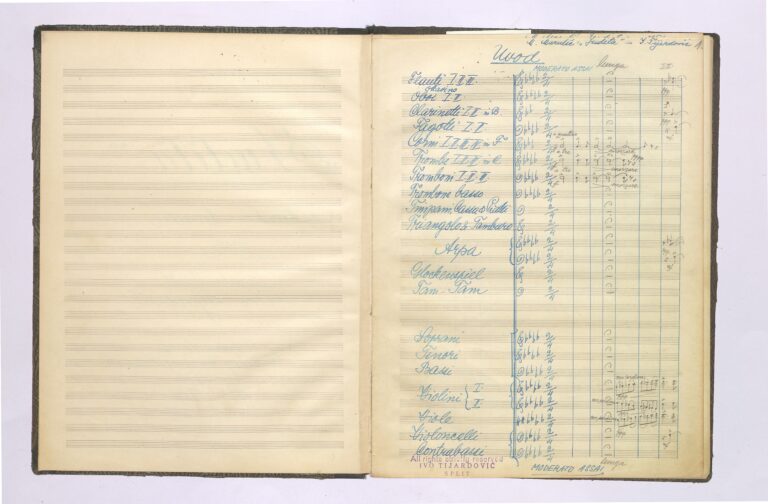 M. Marulić "Judita" - I. Tijardović 1.
Uvod
MODERATO ASSAI lunga
Flauti I II III
Oboi I II
Clarinetti I II in B
Fagotti I II
Corni I II III IV in F
Trombe I II III in C
Tromboni I II III
Trombone basso
Timpani, Cassa e Piatti
Triangolo e Tamburo
Arpa
Glockenspiel
Tam-Tam
Soprani
Tenori
Bassi
Violini I
II
Viole
Violoncelli
Contrabassi
All rights strictly reserved
IVO TIJARDOVIĆ
SPLIT
MODERATO ASSAI lunga